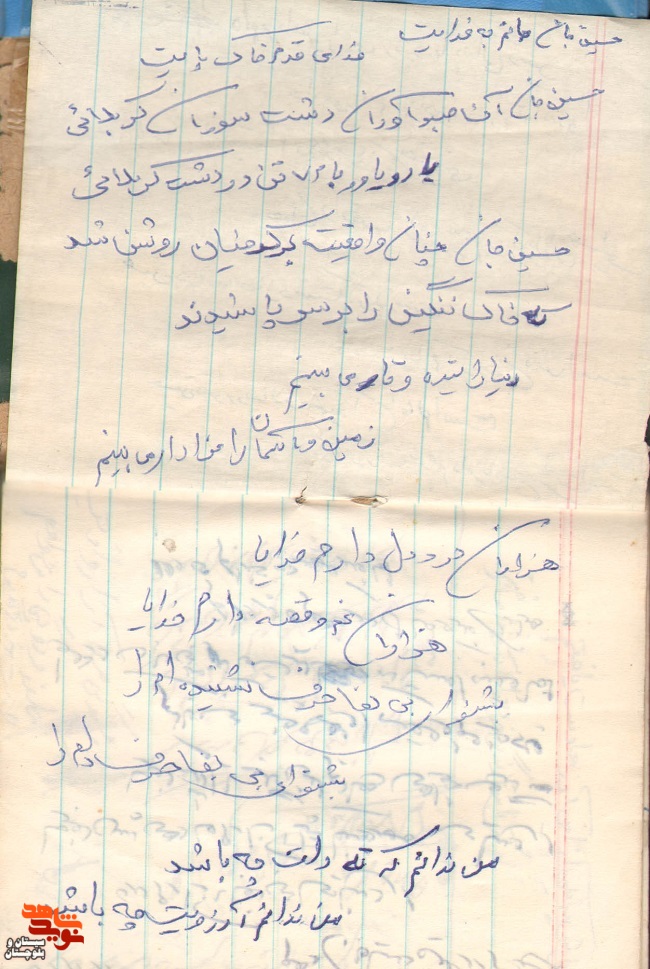 حسین جان جانم به فدایت
فدای قدم خاک پایت
حسین جان آن صبوا کوران دشت سوزان کربلائی
یارو یاور با ۷۲ تن در دشت کربلائی
حسین جان چنان واقعیت بر کوفیان روشن شد
که خاک ننگین را بر سر پاشیدند
دنیا را تیره و تار می بینم
زمین و آسمان را عزادار می بینم
هزاران درد دل دارم خدایا
هزاران غم و قصه دارم خدایا
بشنو ای بی بقا حرف نشنیده ام را
بشنو ای بی بقا حرف دلم را
من ندانم که ته دلت چه باشد
من ندانم آرزویت چه باشد
نوید شاهد
سیستان و بلوچستان